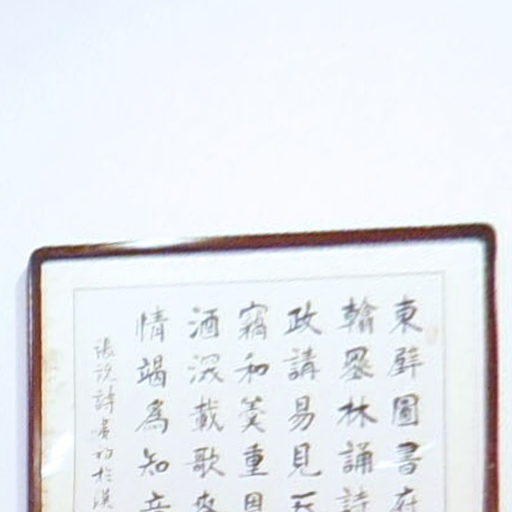 東壁圖書府
翰墨林誦詩
政講易見天
竊和羹重恩
酒深載歌
情竭為知音
張說詩